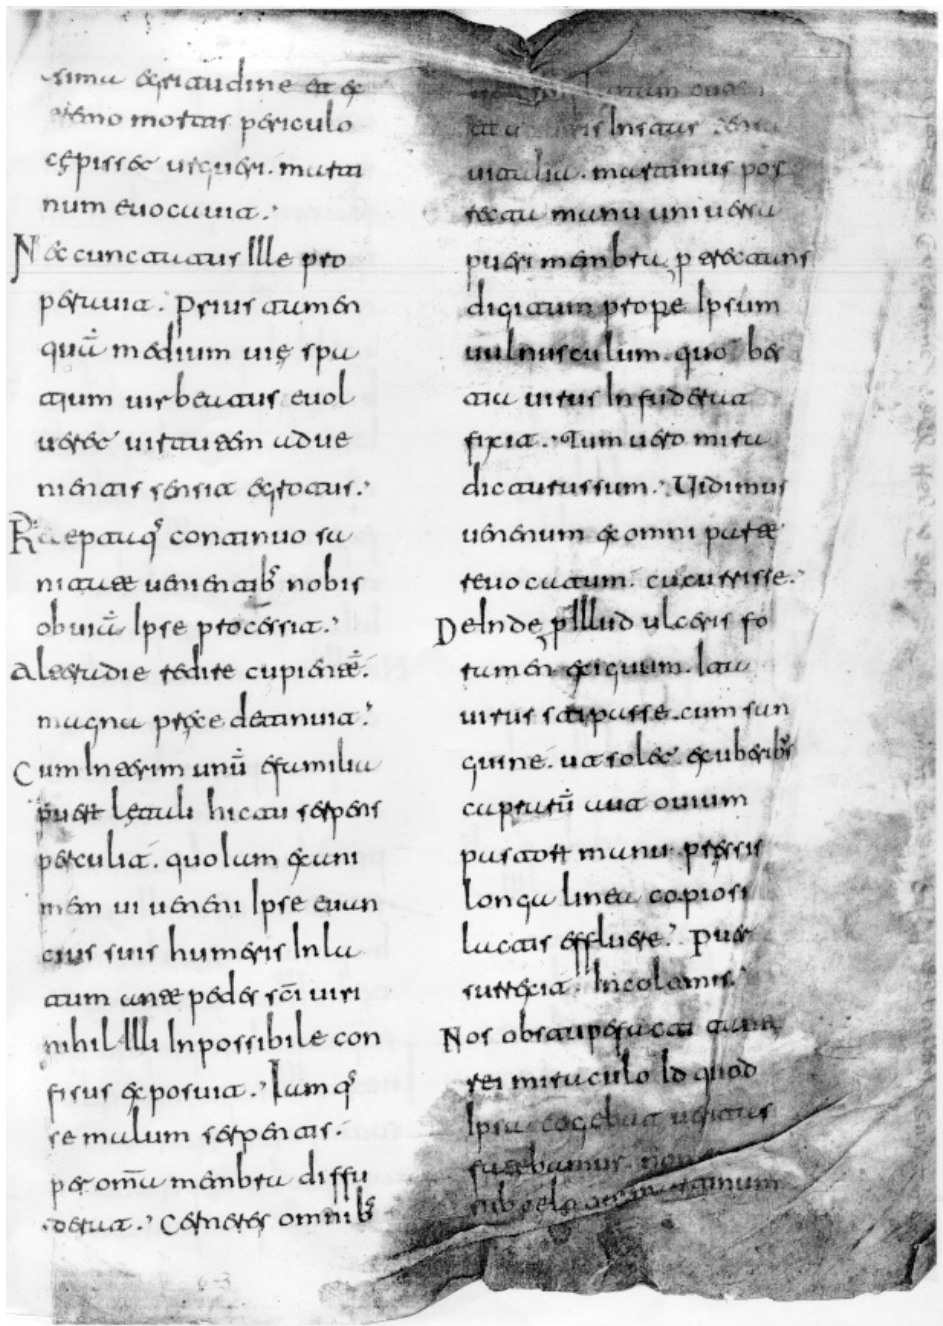 sima egritudine et ex
tremo mortis periculo
cępisset urgueri. marti
num evocavit.
Nec cunctatus Ille pro
peravit. Prius tamen
quā medium vię spa
tium vir beatus evol
veret virtutem adve
nientis sensit egrotus.
Receptaq; continuo sa
nitate venientib; nobis
obviā Ipse processit.
Alterudie redire cupientē.
magna pręce detinuit.
Cum Interim unū efamilia
puerū lętali hictu serpens
perculit. quo Iam exani
mem vi veneni Ipse evan
cius suis humeris Inla
tum ante pedes sc̄i viri
nihil Illi Inpossibile con
fisus exposuit. Iam q;
se malum serpentis.
per om̄a membra diffu
derat. Cerneres omnib;
viscalia. martinus por
recta manu universa
pueri membra, pertectans
digitum prope Ipsum
vulnusculum. quo bes
tia virus Infuderat
fixit. Tum vero mira
dicturussum. Vidimus
venenum ex omni parte
revocatum. cucurrisse.
DeInde, p Illud ulceris fo
ramen exiguum. Ita
virus stipasse. cum san
guine. ut solet exuberib;
caprarū aut ovium
pastorū manu pressis
longa linea copiosi
lactis effluere. Puer
surrexit Incolomis.
Nos obstupefacti tantę
rei miraculo Id quod
Ipsa cogebat veritas
fatebamur. non
sub celo